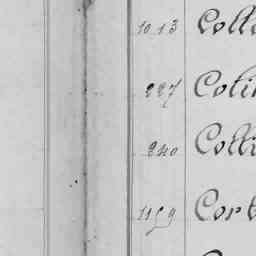 1013 Coll
227 Coti
240 Colli
1159 Cort